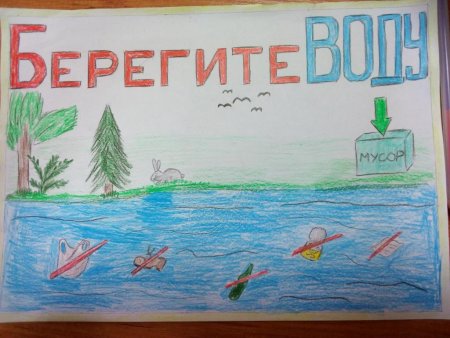 БЕРЕГИТЕ ВОДУ
МУСОР